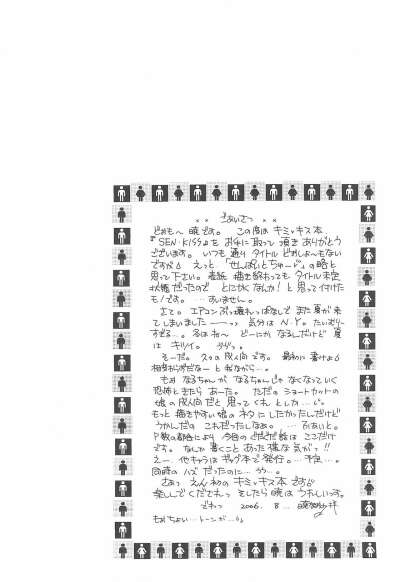 ×× ごあいさつ ××
どおも〜 暁です。 この度は キミッキス本
『SEN・KISS』を お手に取って 頂き ありがとう
ございます。 いつも通り タイトル どおしょーもない
ですが えっと 「せんぱいとちゅーじ。」の略と
思って下さい。 表紙 描き終わっても タイトル未定
状態だったので とにかくなんか! と思って付けた
モノです。 …すいません。
さて。 エアコン ぶっ壊れっぱなしで また夏が来
てしまいました 気分は N.Y.
冬はね〜 どーにか なるんだけど 夏
は キツイ。
そーだ。 久々の成人向です。 最初に 書けよ
相変わらずだなー と 我ながら…。
もお なるちゃんが なるちゃんじゃ なくなっていく
恐怖ときたら あーた。 ただの ショートカットの
娘の成人向だと 思ってくれ としか…
もっと 描きやすい娘のネタに したかったんだけど
うかんだの これだったしなぁ。
P数の都合により 今回の ぐだぐだ話は ここだけ
です。 なんか 書くこと あった様な気がっ!!
えー 他キャラは ギャグ本で発行。 …予定…。
同時の ハズ だったのに…
さぁっ えん初の キミッキス本 です
楽しんで くだされっ そしたら 暁は うれしいっす。
でわっ 2006. 8